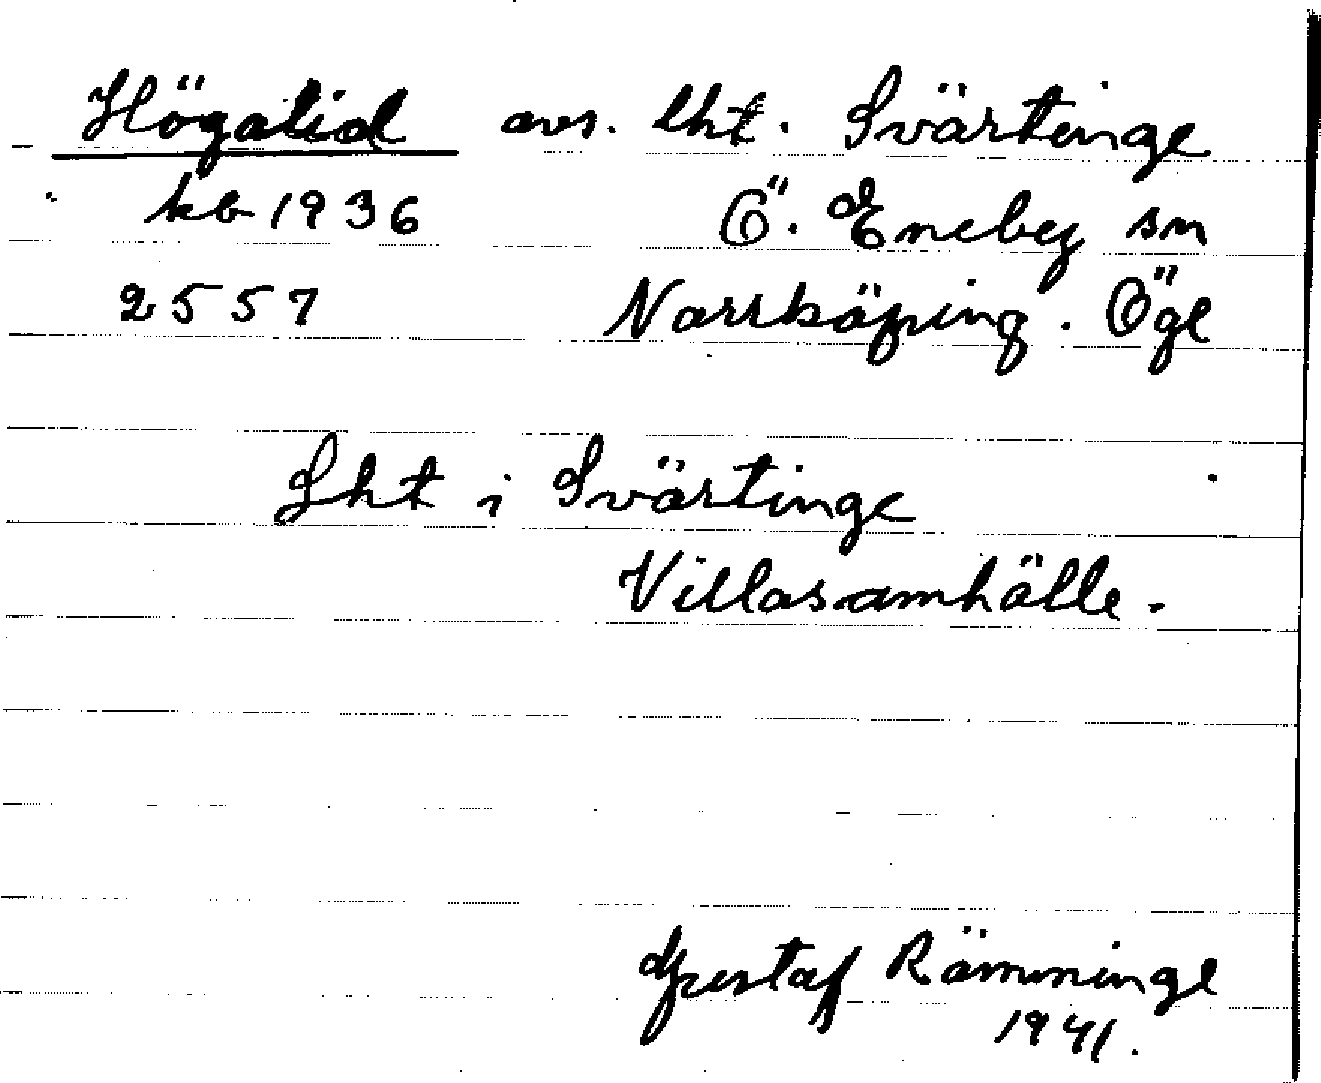 Högalid avs. lht. Svärtinge
kb 1936 Ö. Eneby sn
2557 Norrköping. Ögl
Lht i Svärtinge
Villasamhälle.
Gustaf Rämminge
1941.